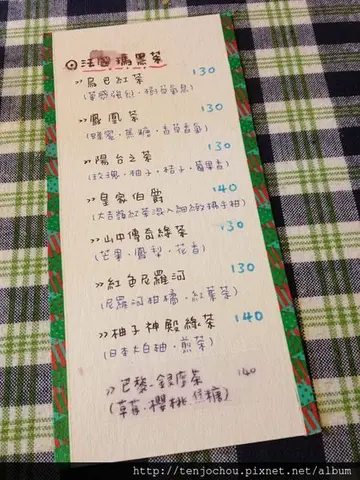 ⊙法國瑪黑茶
>>烏巴紅茶 130
(茶感強烈.樹莓氣息)
>>鳳凰茶 130
(蜂蜜.焦糖.香草香氣)
>>陽台之茶 130
(玫瑰.柚子.桔子.蘋果香)
>>皇家伯爵 140
(大吉嶺紅茶混入細緻橘子柑)
>>山中傳奇綠茶 130
(芒果.鳳梨.花香)
>>紅色尼羅河 130
(尼羅河柑橘.紅葉茶)
>>柚子神殿綠茶 140
(日本大白柚.煎茶)
>>巴黎-銀座茶 140
(草莓.櫻桃.焦糖)
http://tenjochou.pixnet.net/album